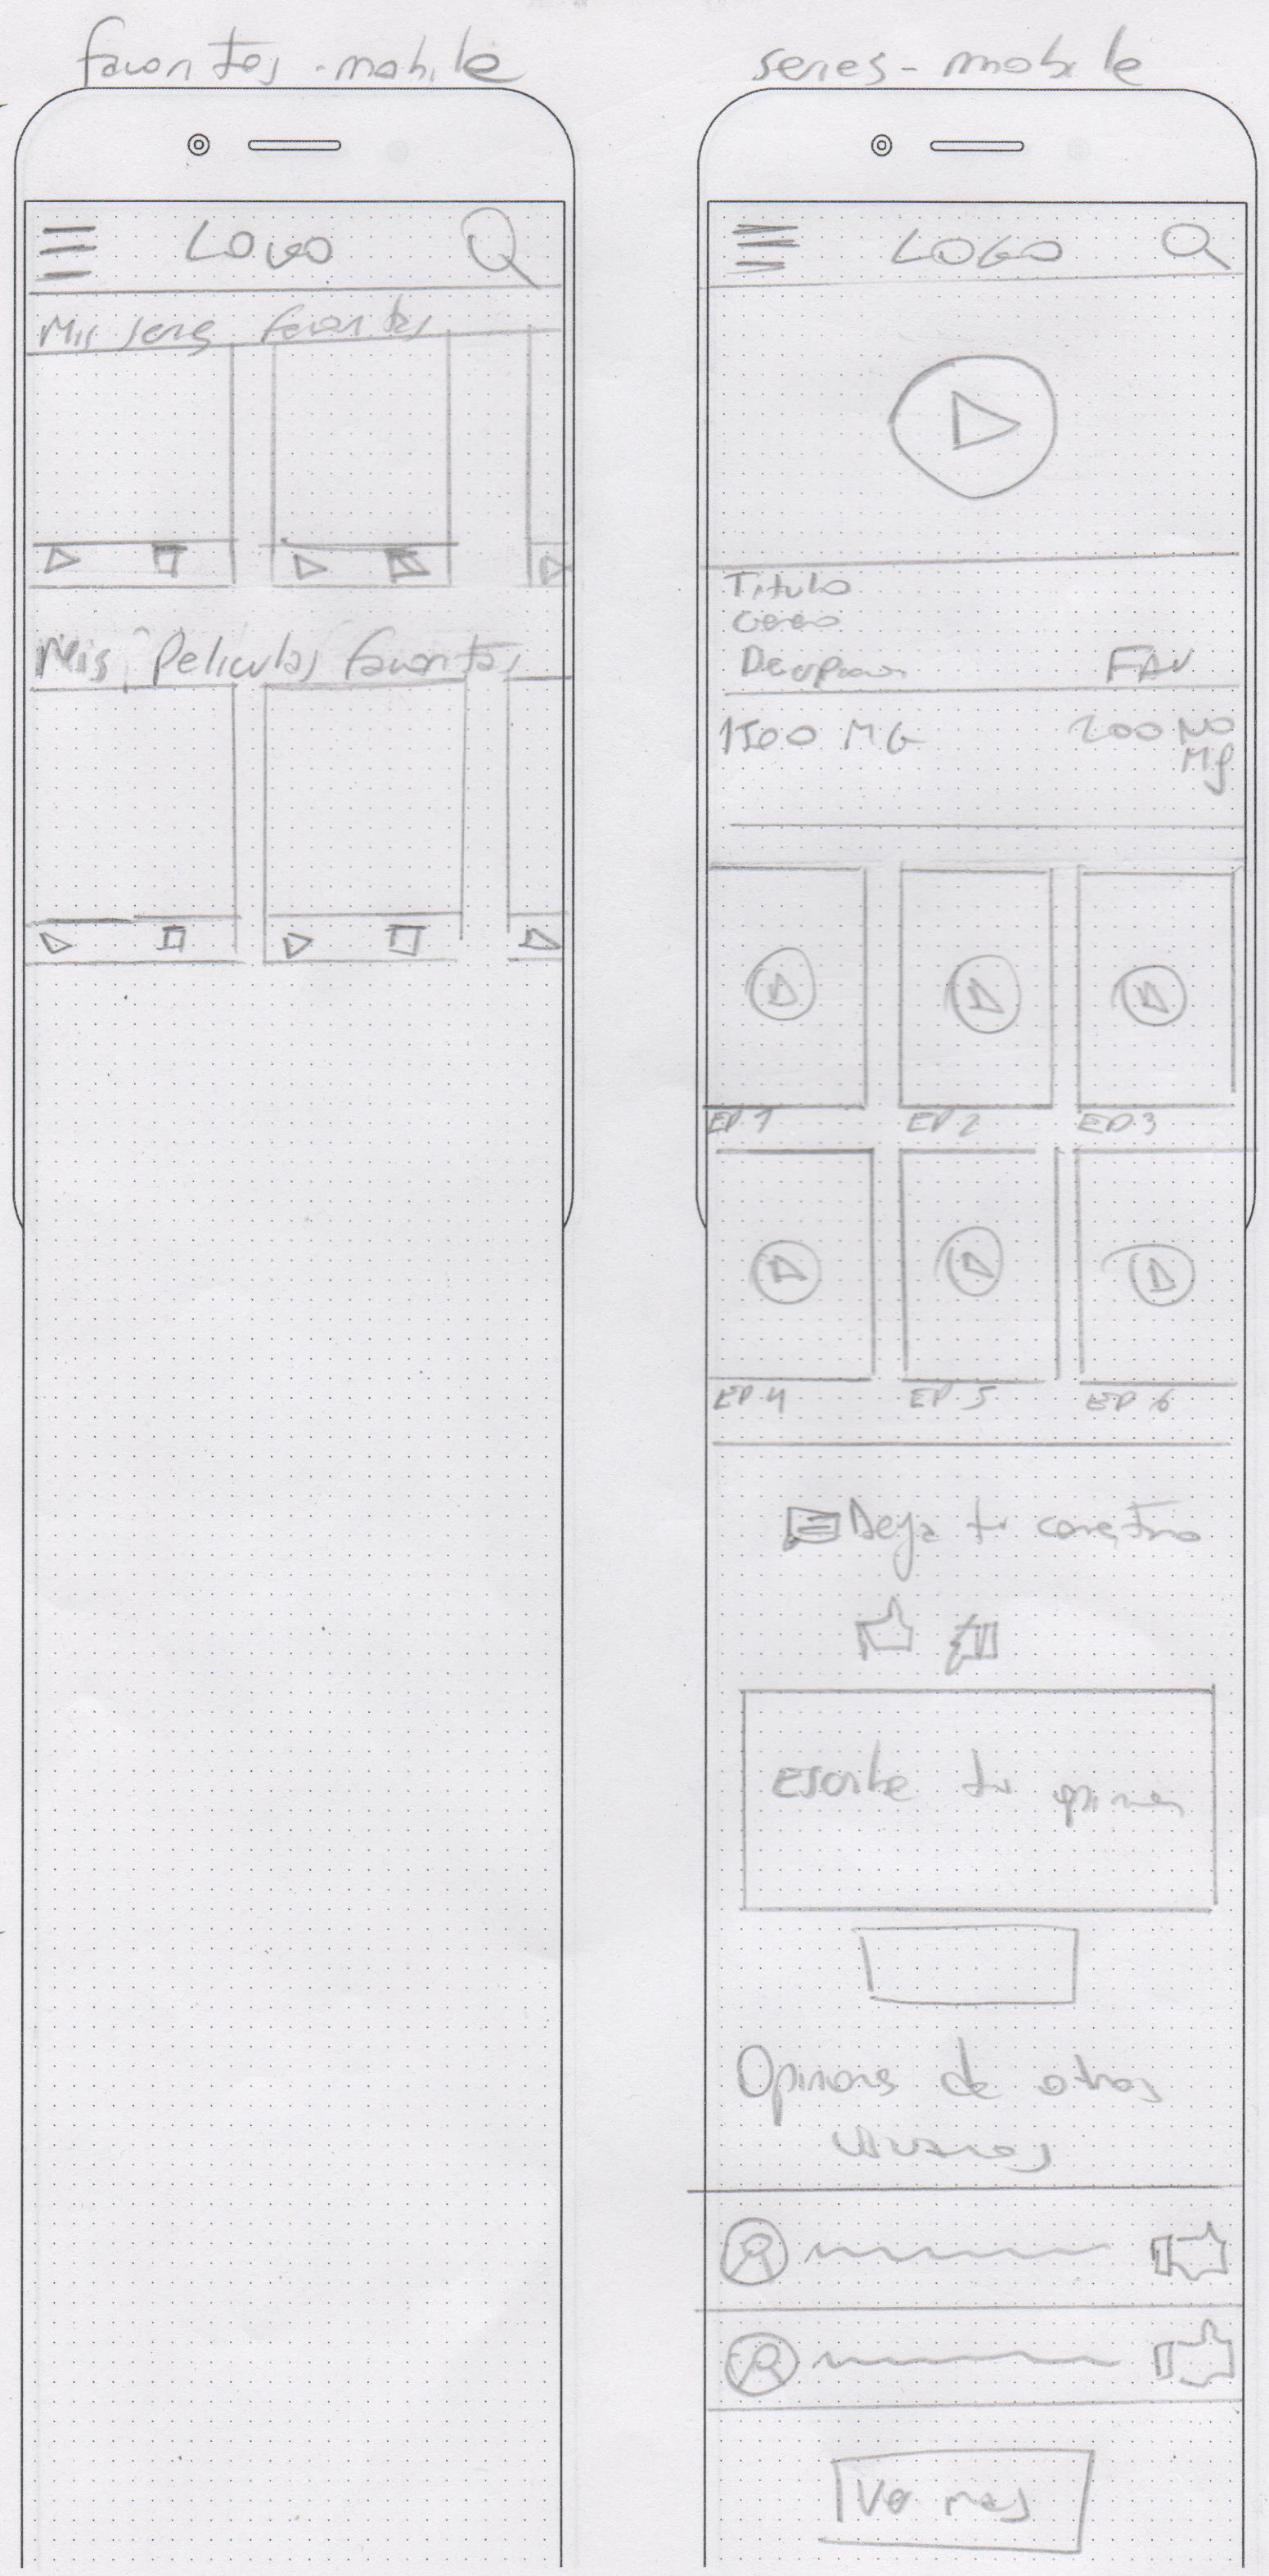 favoritos - mobile
LOGO
Mis series favoritas
Mis Peliculas favoritas
series - mobile
LOGO
Titulo
Genero
Descripcion
FAV
1500 MG
200 NO
MG
EP 1
EP 2
EP 3
EP 4
EP 5
EP 6
Deja tu comentario
Escribe tu opinion
Opiniones de otros
usuarios
Ver mas